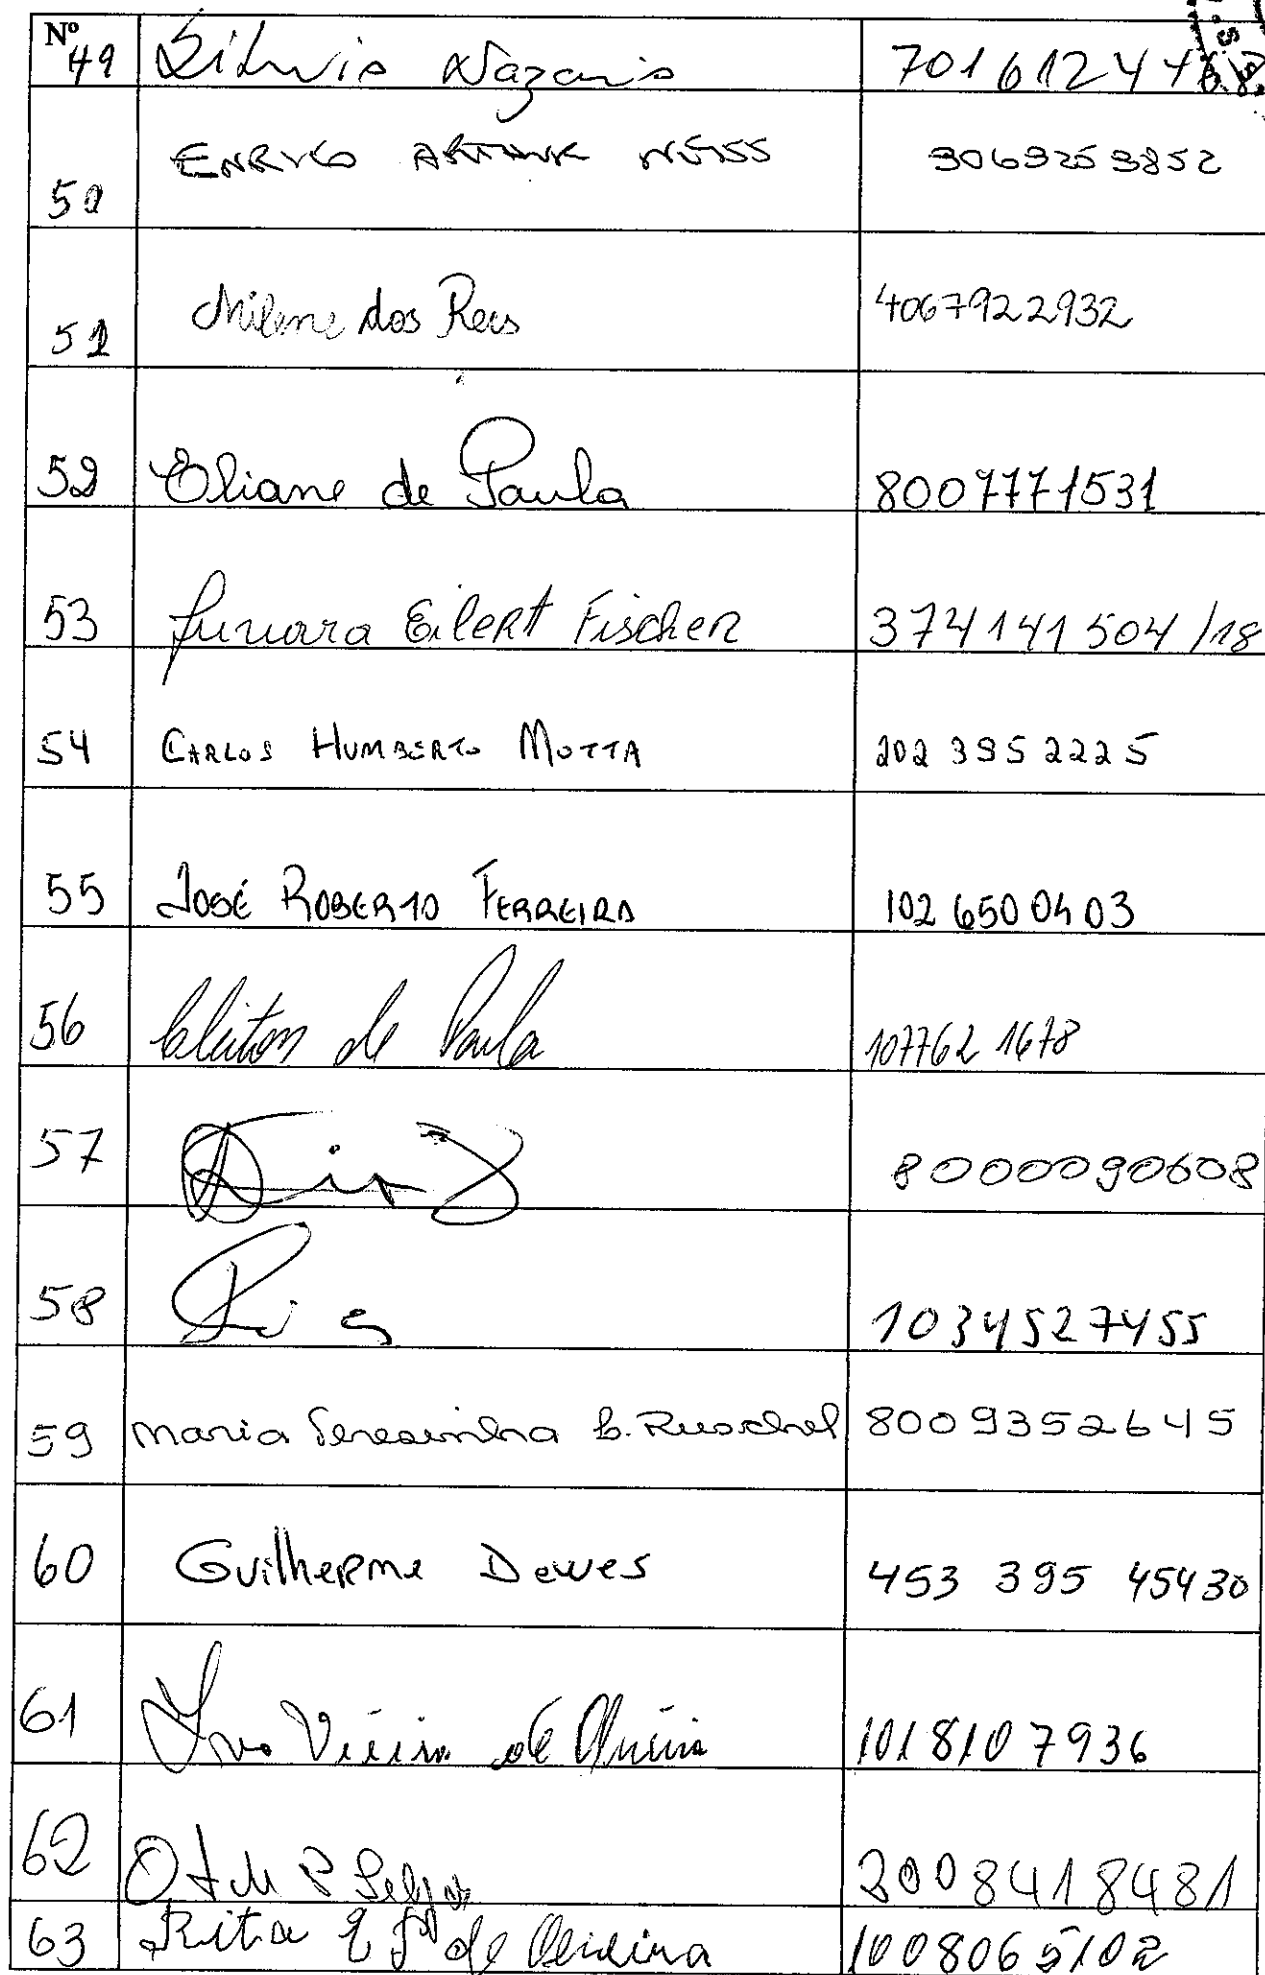 Nº
49 Silvio Nazario 701612444
50 ENRICO ARTHUR NEISS 3069253852
51 Milene dos Reis 4067922932
52 Eliane de Paula 8007771531
53 Jussara Eilert Fischer 374141504/18
54 CARLOS HUMBERTO MOTTA 202 395 2225
55 JOSÉ ROBERTO FERREIRA 102 6500 0403
56 Cleiton de Paula 107762 1678
57 8000090608
58 1034527455
59 Maria Teresinha B. Ruschel 8009352645
60 Guilherme Dewes 453 395 45430
61 Ivo Vieira de Oliveira 1018107936
62 2008418481
63 Rita de Oliveira 1008065102